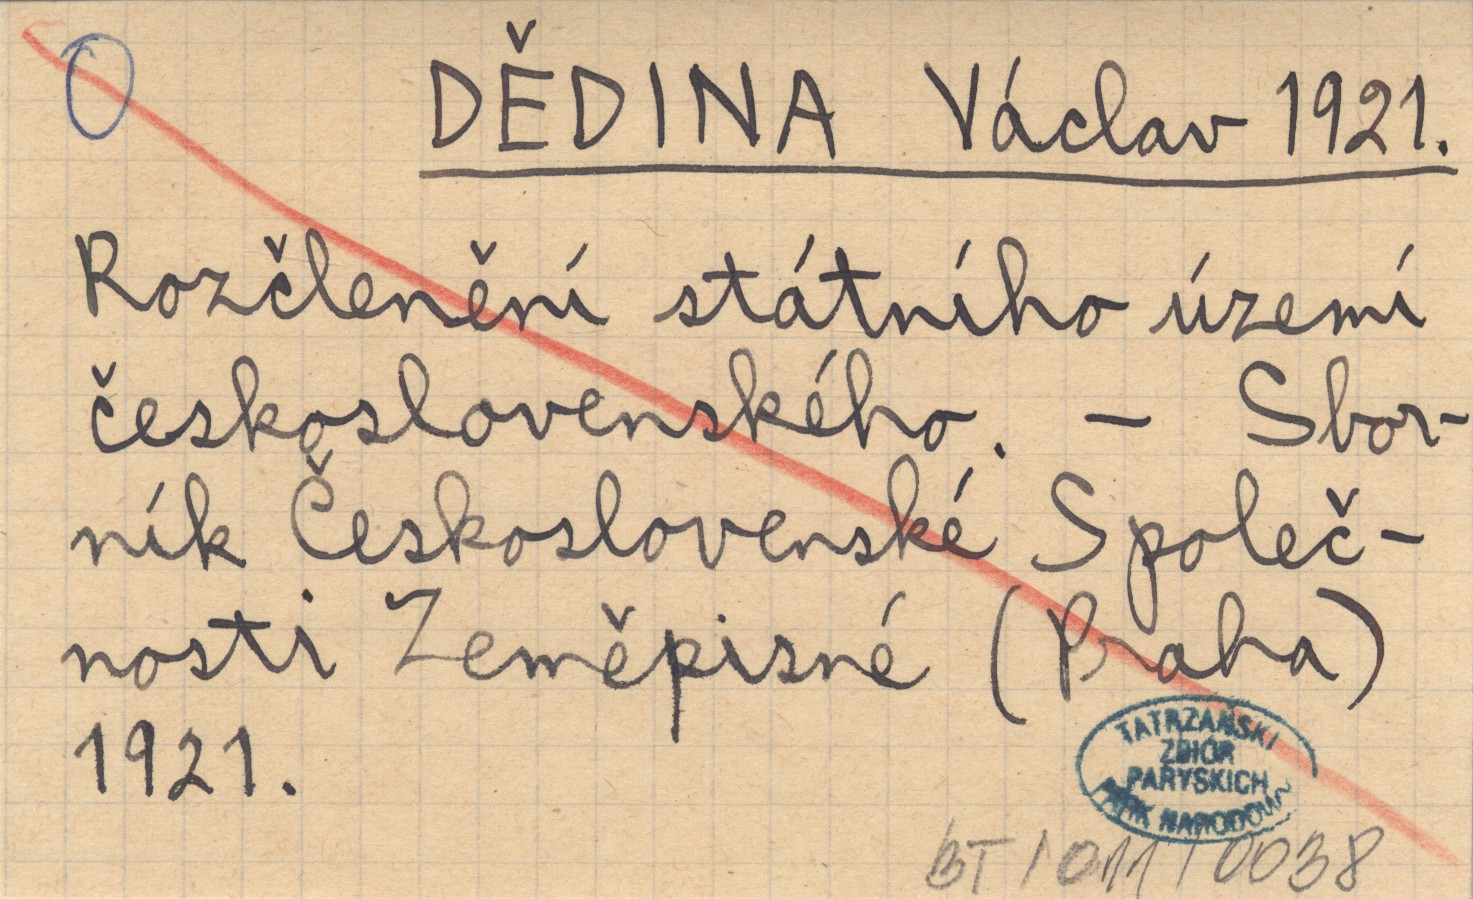 DĚDINA Václav 1921.
Rozčlenění státního území
československého. – Sbor-
ník Československé Společ-
nosti Zeměpisné (Praha)
1921.
TATRZAŃSKI
ZBIÓR
PARYSKICH
PARK NARODOWY
BT/011/0038